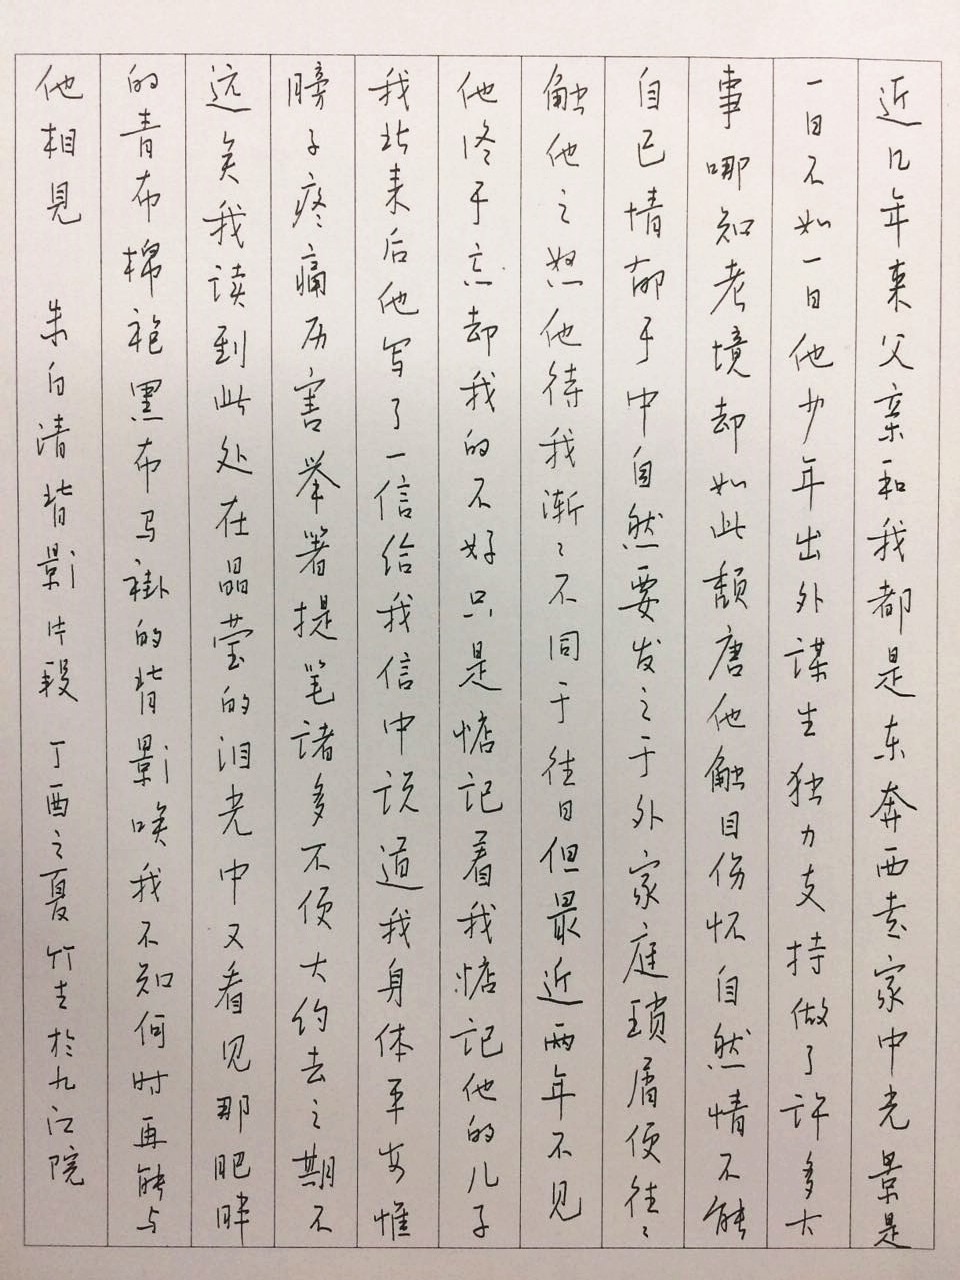 近几年来父亲和我都是东奔西走家中光景是
一日不如一日他少年出外谋生独力支持做了许多大
事哪知老境却如此颓唐他触目伤怀自然情不能
自已情郁于中自然要发之于外家庭琐屑便往〻
触他之怒他待我渐〻不同于往日但最近两年不见
他终于忘却我的不好只是惦记着我惦记他的儿子
我北来后他写了一信给我信中说道我身体平安惟
膀子疼痛历害举箸提笔诸多不便大约去之期不
远矣我读到此处在晶莹的泪光中又看见那肥胖
的青布棉袍黑布马褂的背影唉我不知何时再能与
他相見 朱自清背影片段 丁酉之夏竹生於九江院